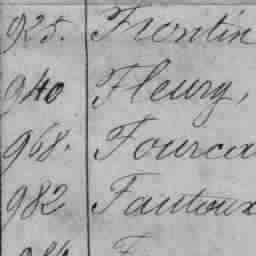 925. Frontin
940 Fleury,
968. Fourca
982 Fautoux